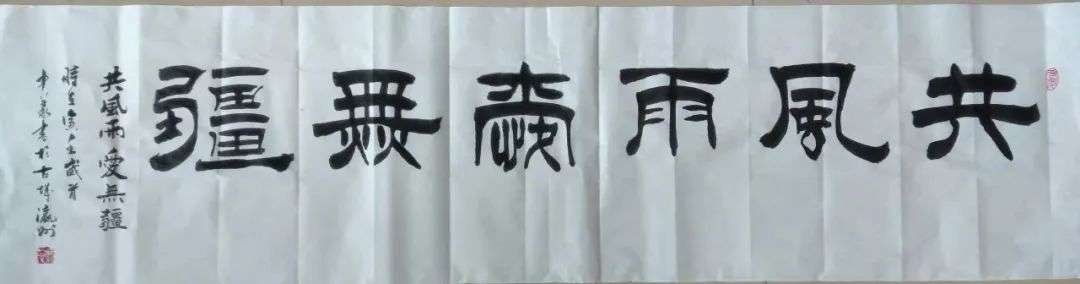 共風雨愛無疆
共風雨愛無疆
時在
書於古博瀛州